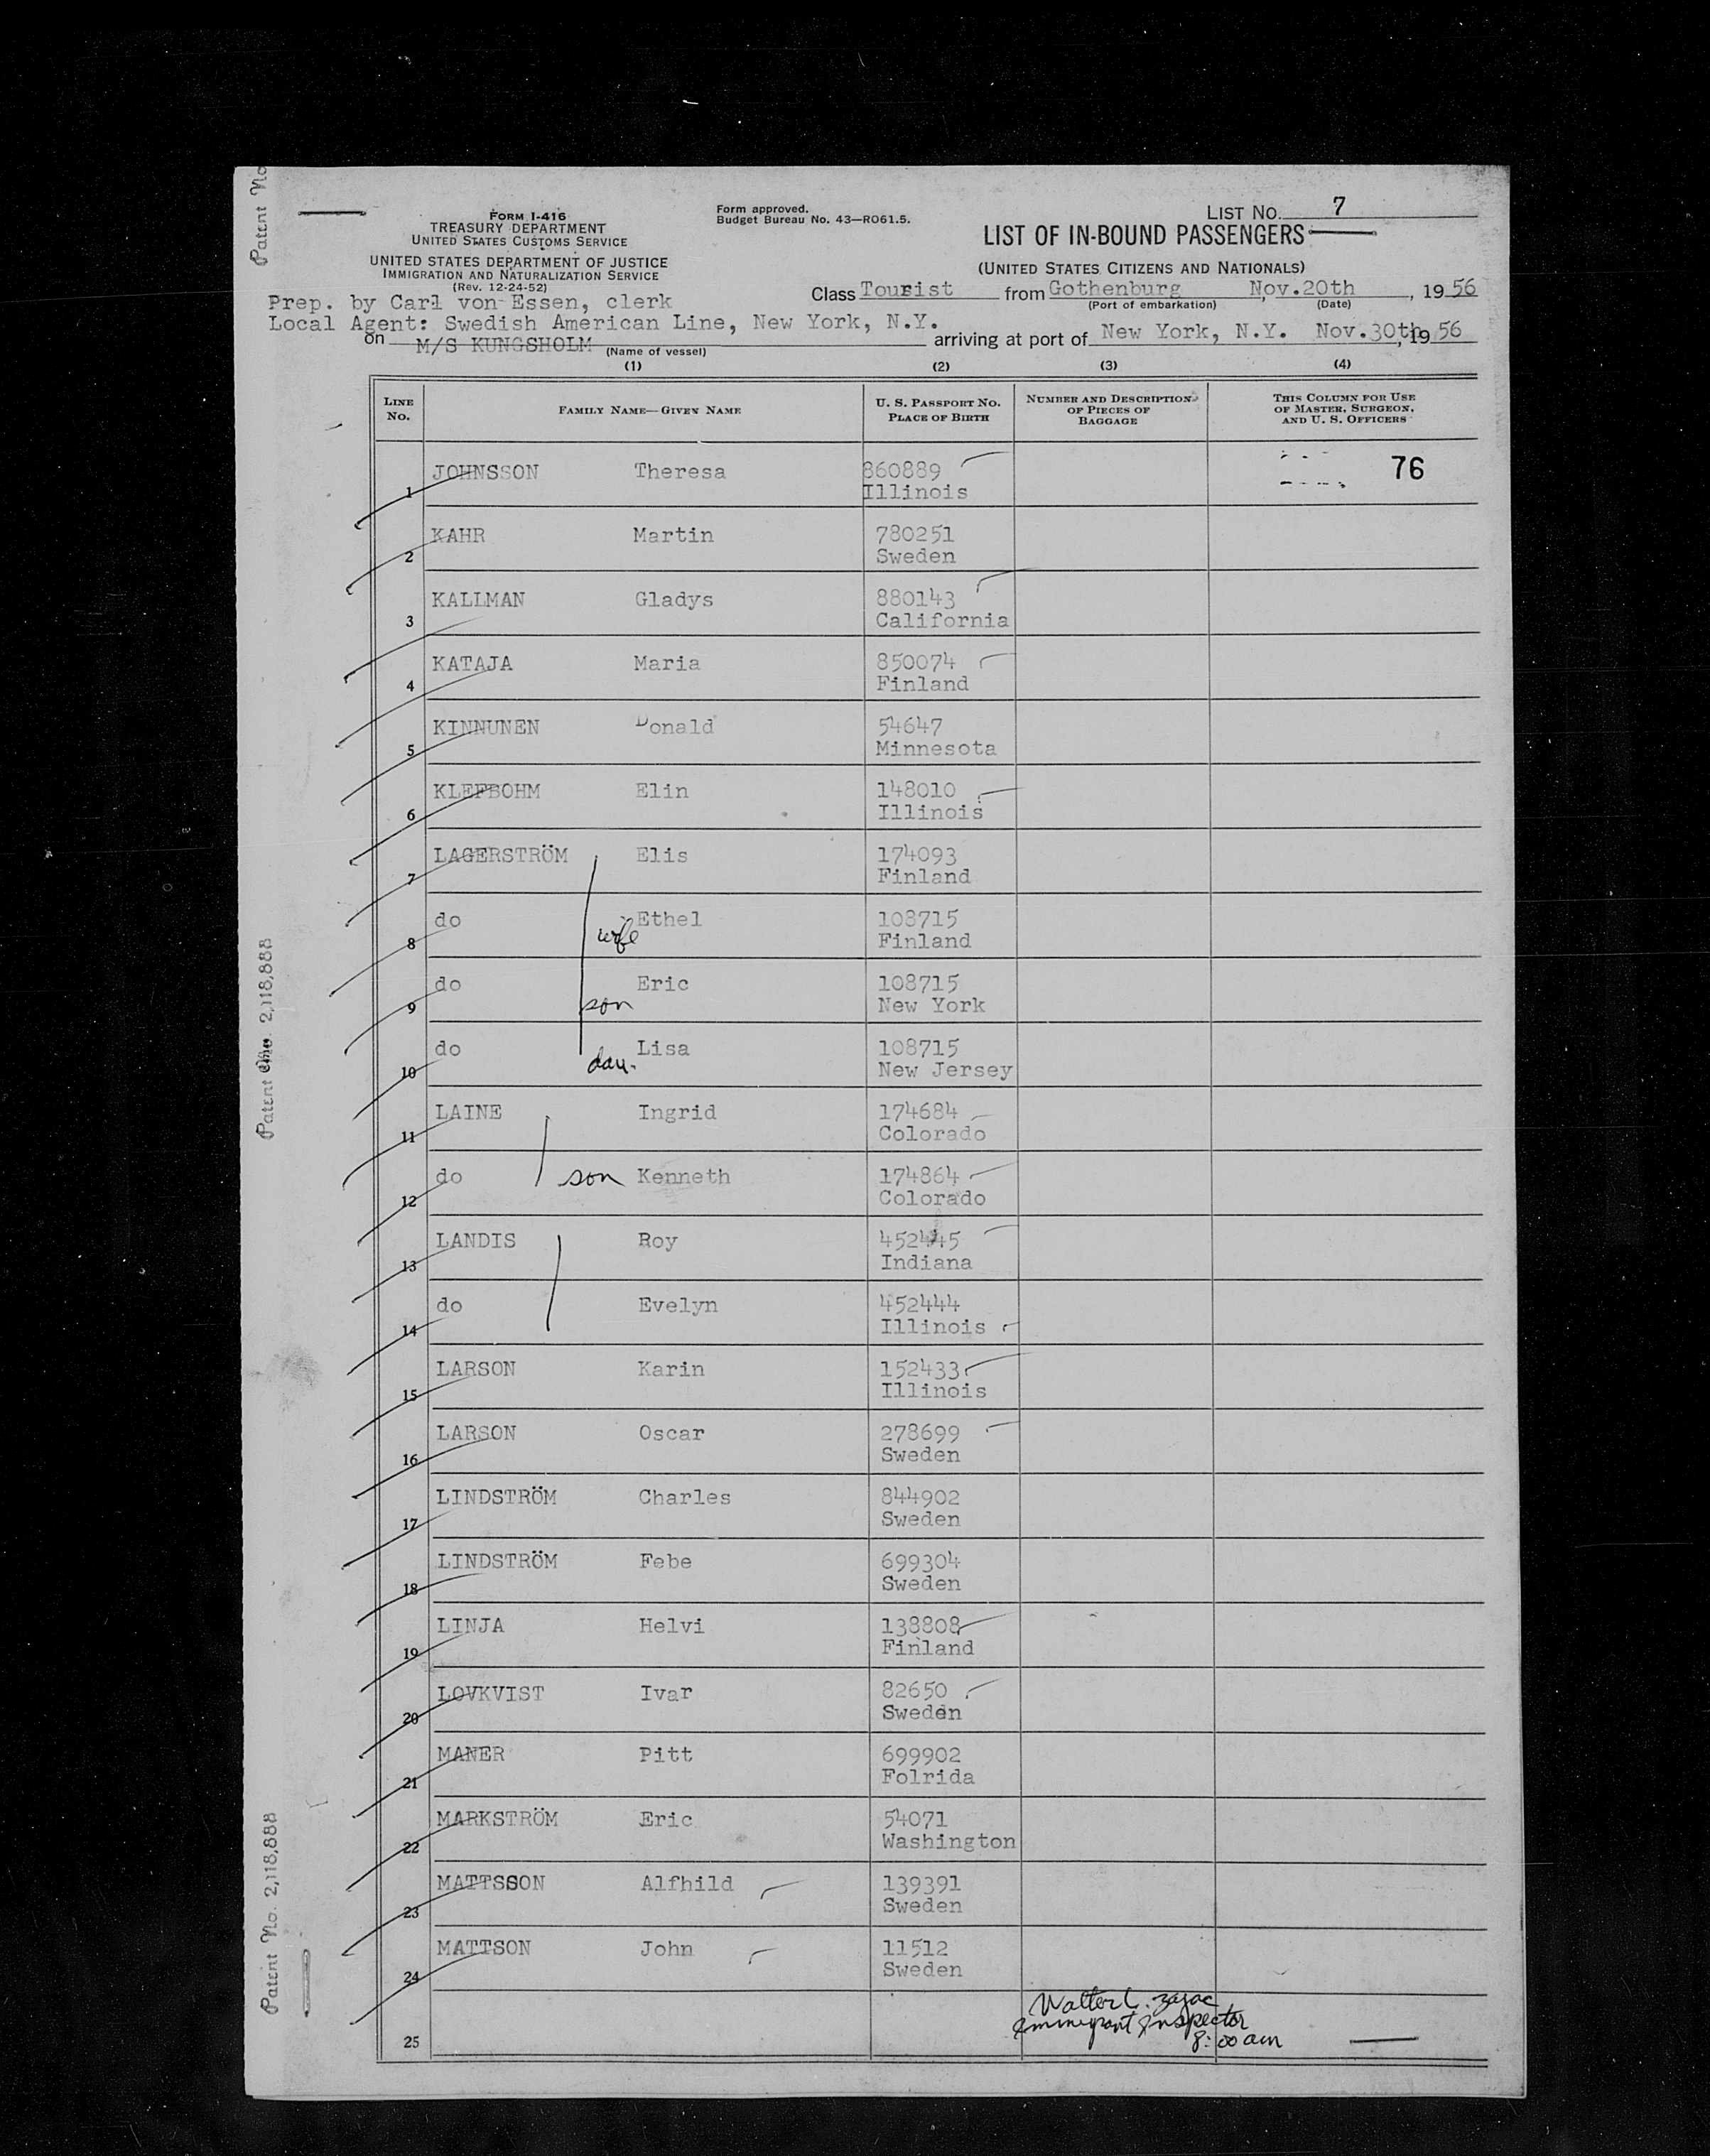 Patent No
FORM I-416
TREASURY DEPARTMENT
UNITED STATES CUSTOMS SERVICE
UNITED STATES DEPARTMENT OF JUSTICE
IMMIGRATION AND NATURALIZATION SERVICE
(Rev. 12-24-52)
Form approved.
Budget Bureau No. 43—RO61.5.
LIST NO. 7
LIST OF IN-BOUND PASSENGERS
(UNITED STATES CITIZENS AND NATIONALS)
Prep. by Carl von Essen, clerk
Class Tourist from Gothenburg Nov.20th, 1956
(Port of embarkation) (Date)
Local Agent: Swedish American Line, New York, N.Y.
on M/S KUNGSHOLM arriving at port of New York, N.Y. Nov.30th, 1956
(Name of vessel)
(1) (2) (3) (4)
LINE NO. FAMILY NAME—GIVEN NAME U. S. PASSPORT NO. PLACE OF BIRTH NUMBER AND DESCRIPTION OF PIECES OF BAGGAGE THIS COLUMN FOR USE OF MASTER, SURGEON, AND U. S. OFFICERS
JOHNSSON Theresa 860889 76
1 Illinois
KAHR Martin 780251
2 Sweden
KALLMAN Gladys 880143
3 California
KATAJA Maria 850074
4 Finland
KINNUNEN Donald 54647
5 Minnesota
KLEFBOHM Elin 148010
6 Illinois
LAGERSTRÖM Elis 174093
7 Finland
do wife Ethel 108715
8 Finland
do Eric 108715
9 son New York
do Lisa 108715
10 dau. New Jersey
LAINE Ingrid 174684
11 Colorado
do son Kenneth 174864
12 Colorado
LANDIS Roy 452445
13 Indiana
do Evelyn 452444
14 Illinois
LARSON Karin 152433
15 Illinois
LARSON Oscar 278699
16 Sweden
LINDSTRÖM Charles 844902
17 Sweden
LINDSTRÖM Febe 699304
18 Sweden
LINJA Helvi 138808
19 Finland
LOVKVIST Ivar 82650
20 Sweden
MANER Pitt 699902
21 Folrida
MARKSTRÖM Eric 54071
22 Washington
MATTSSON Alfhild 139391
23 Sweden
MATTSON John 11512
24 Sweden
25
Walter C. Zajac
Immigrant Inspector
8:00 am
Patent No. 2,118,888
Patent No. 2,118,888